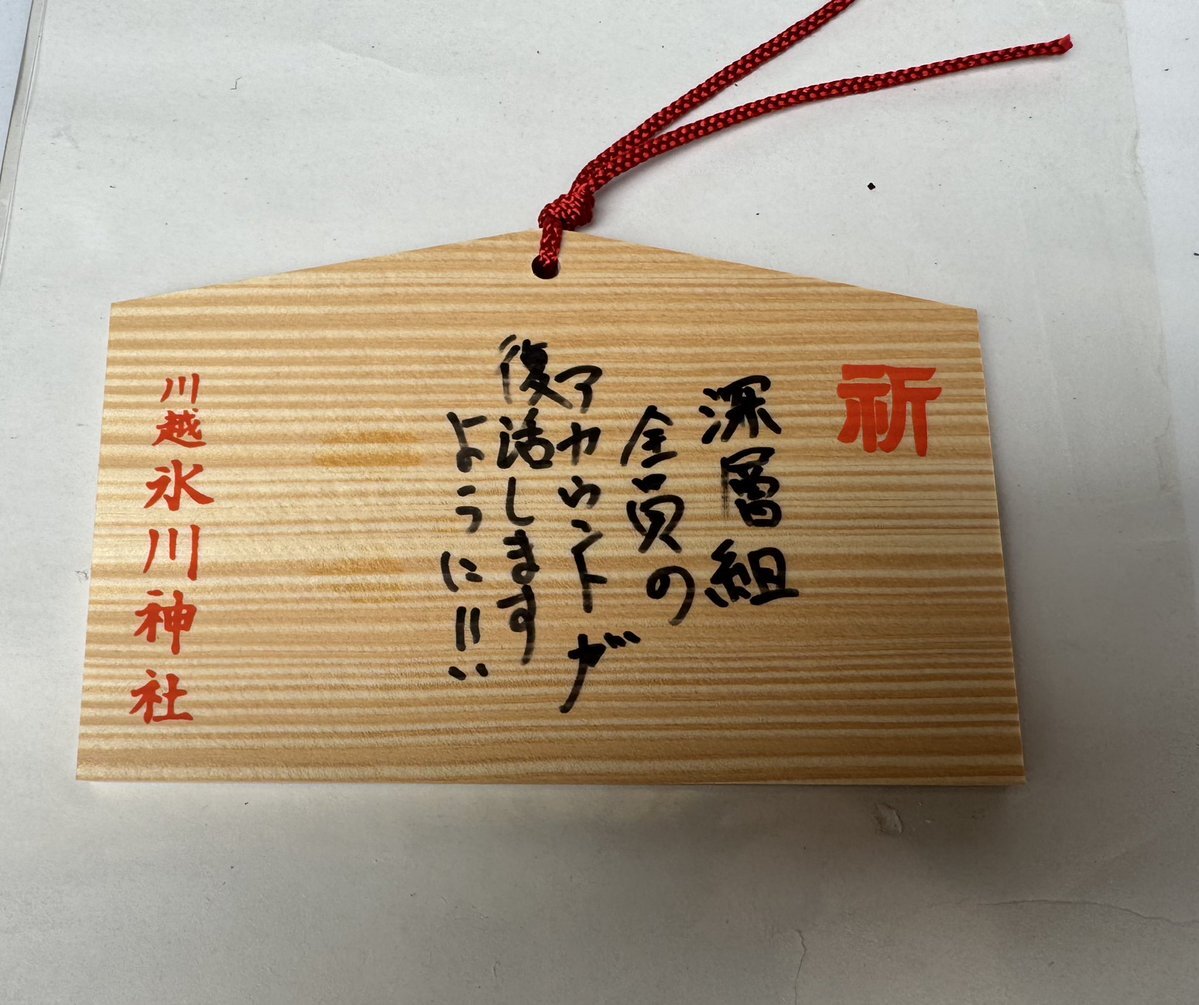 祈
深層組
全員の
アカウントが
復活します
ように!!
川越氷川神社